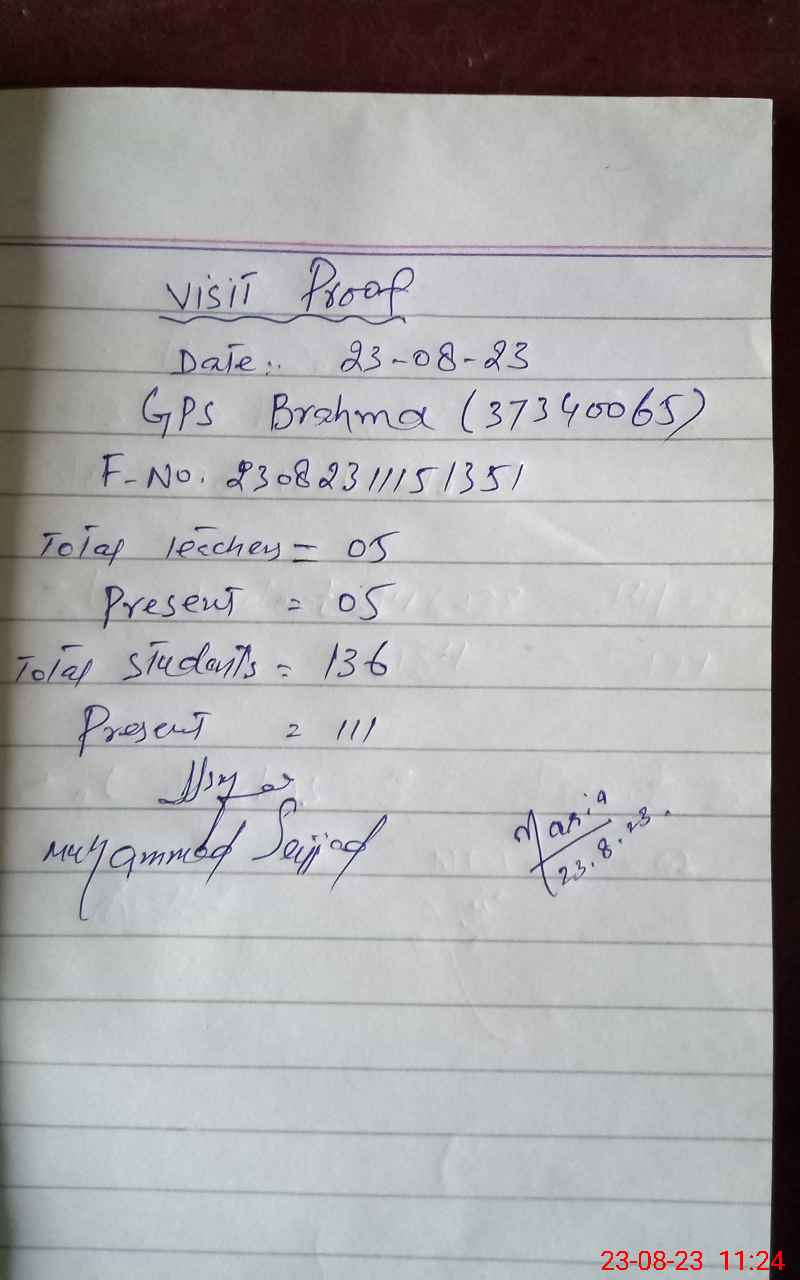 Visit Proof
Date:. 23-08-23
GPS Brahma (37340065)
F-No. 23082311151351
Total teachers = 05
Present = 05
Total students = 136
Present = 111
Muhammad Sajjad
Maria
23.8.23.
23-08-23 11:24